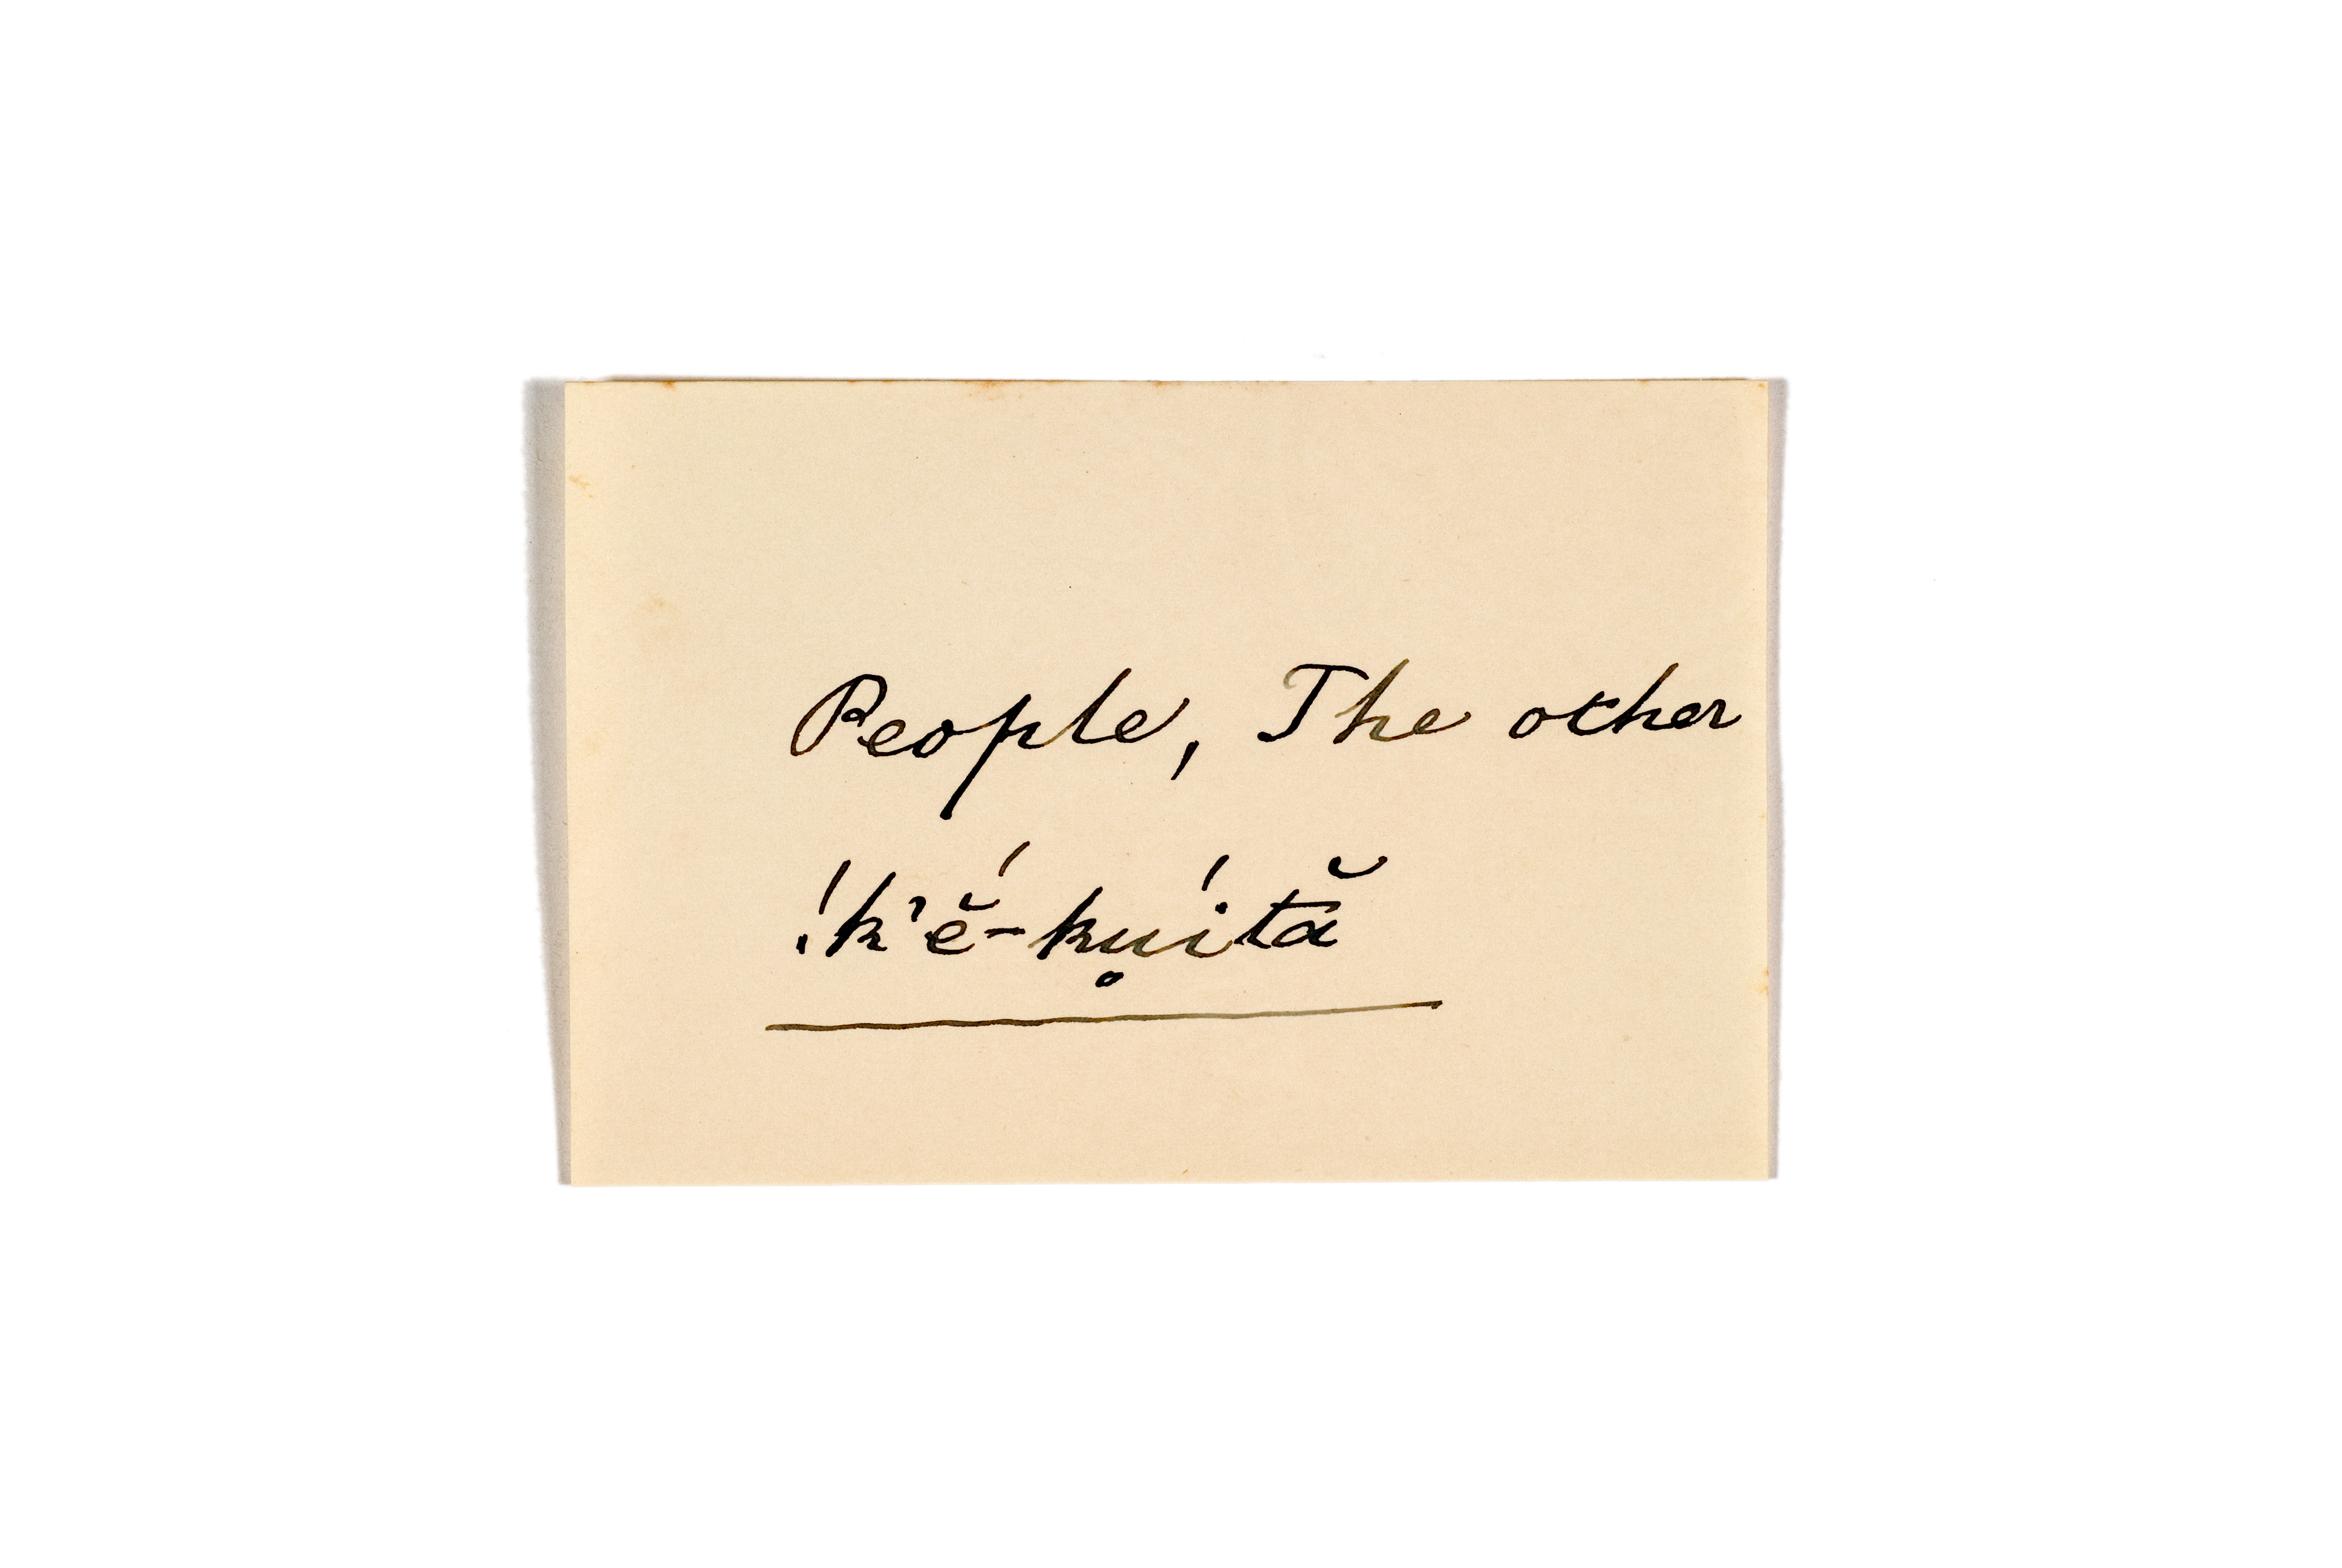 People, The other
!kʼĕ́-kų̥́ită